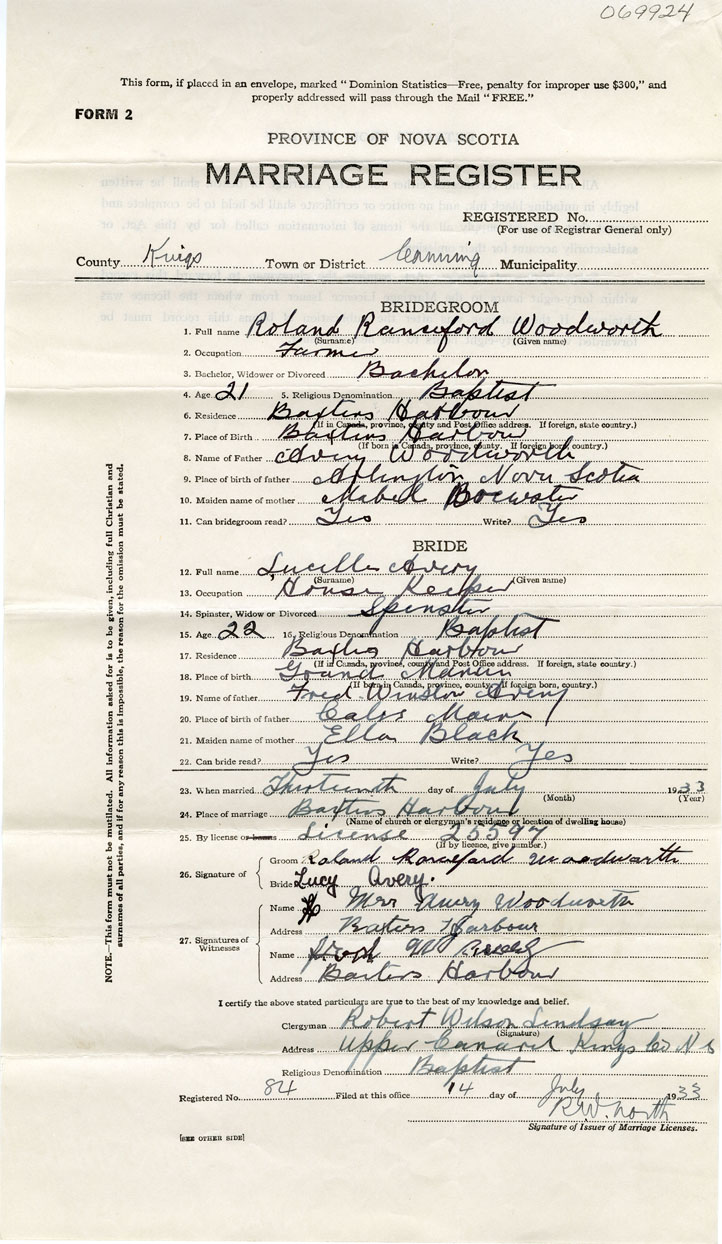 069924
This form, if placed in an envelope, marked "Dominion Statistics—Free, penalty for improper use $300," and
properly addressed will pass through the Mail "FREE."
FORM 2
PROVINCE OF NOVA SCOTIA
MARRIAGE REGISTER
REGISTERED No.
(For use of Registrar General only)
County Kings Town or District Canning Municipality
BRIDEGROOM
1. Full name Roland Ranceford Woodworth
(Surname) (Given name)
2. Occupation Farmer
3. Bachelor, Widower or Divorced Bachelor
4. Age 21 5. Religious Denomination Baptist
6. Residence Baxters Harbour
(If in Canada, province, county and Post Office address. If foreign, state country.)
7. Place of Birth Baxters Harbour
(If born in Canada, province, county. If foreign born, country.)
8. Name of Father Avery Woodworth
9. Place of birth of father Arlington Nova Scotia
10. Maiden name of mother Mabel Brewster
11. Can bridegroom read? Yes Write? Yes
BRIDE
12. Full name Lucilla Avery
(Surname) (Given name)
13. Occupation House Keeper
14. Spinster, Widow or Divorced Spinster
15. Age 22 16. Religious Denomination Baptist
17. Residence Baxters Harbour
(If in Canada, province, county and Post Office address. If foreign, state country.)
18. Place of birth Grand Manan
(If born in Canada, province, county. If foreign born, country.)
19. Name of father Fred Winslow Avery
20. Place of birth of father Maine
21. Maiden name of mother Ella Black
22. Can bride read? Yes Write? Yes
23. When married Thirteenth day of July 1933
(Month) (Year)
24. Place of marriage Baxters Harbour
(Name of church or clergyman's residence or location of dwelling house)
25. By license or banns License 25597
(If by licence, give number.)
26. Signature of
Groom Roland Ranceford Woodworth
Bride Lucy Avery.
27. Signatures of Witnesses
Name Mrs Avery Woodworth
Address Baxters Harbour
Name
Address Baxters Harbour
NOTE.—This form must not be mutilated. All information asked for is to be given, including full Christian and
surnames of all parties, and if for any reason this is impossible, the reason for the omission must be stated.
I certify the above stated particulars are true to the best of my knowledge and belief.
Clergyman Robert Wilson Lindsay
(Signature)
Address Upper Canard Kings Co N S
Religious Denomination Baptist
Registered No. 84 Filed at this office 14 day of July 1933
R.W. North
Signature of Issuer of Marriage Licenses.
[SEE OTHER SIDE]